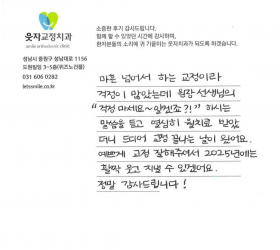 웃자교정치과
smile orthodontic clinic
성남시 중원구 성남대로 1156
도원빌딩 3~5층(위즈노건물)
031 606 0282
letssmile.co.kr
소중한 후기 감사드립니다.
함께 할 수 있었던 시간에 감사하며,
환자분들의 소리에 귀 기울이는 웃자치과가 되도록 하겠습니다.
마흔 넘어서 하는 교정이라
걱정이 많았는데 원장 선생님의
"걱정 마세요~ 하시는
말씀을 듣고 열심히 월치료 받았
더니 드디어 교정 끝나는 날이 왔어요.
예쁘게 교정 잘해주셔서 2025년에는
활짝 웃고 지낼 수 있겠어요.
정말 감사드립니다!